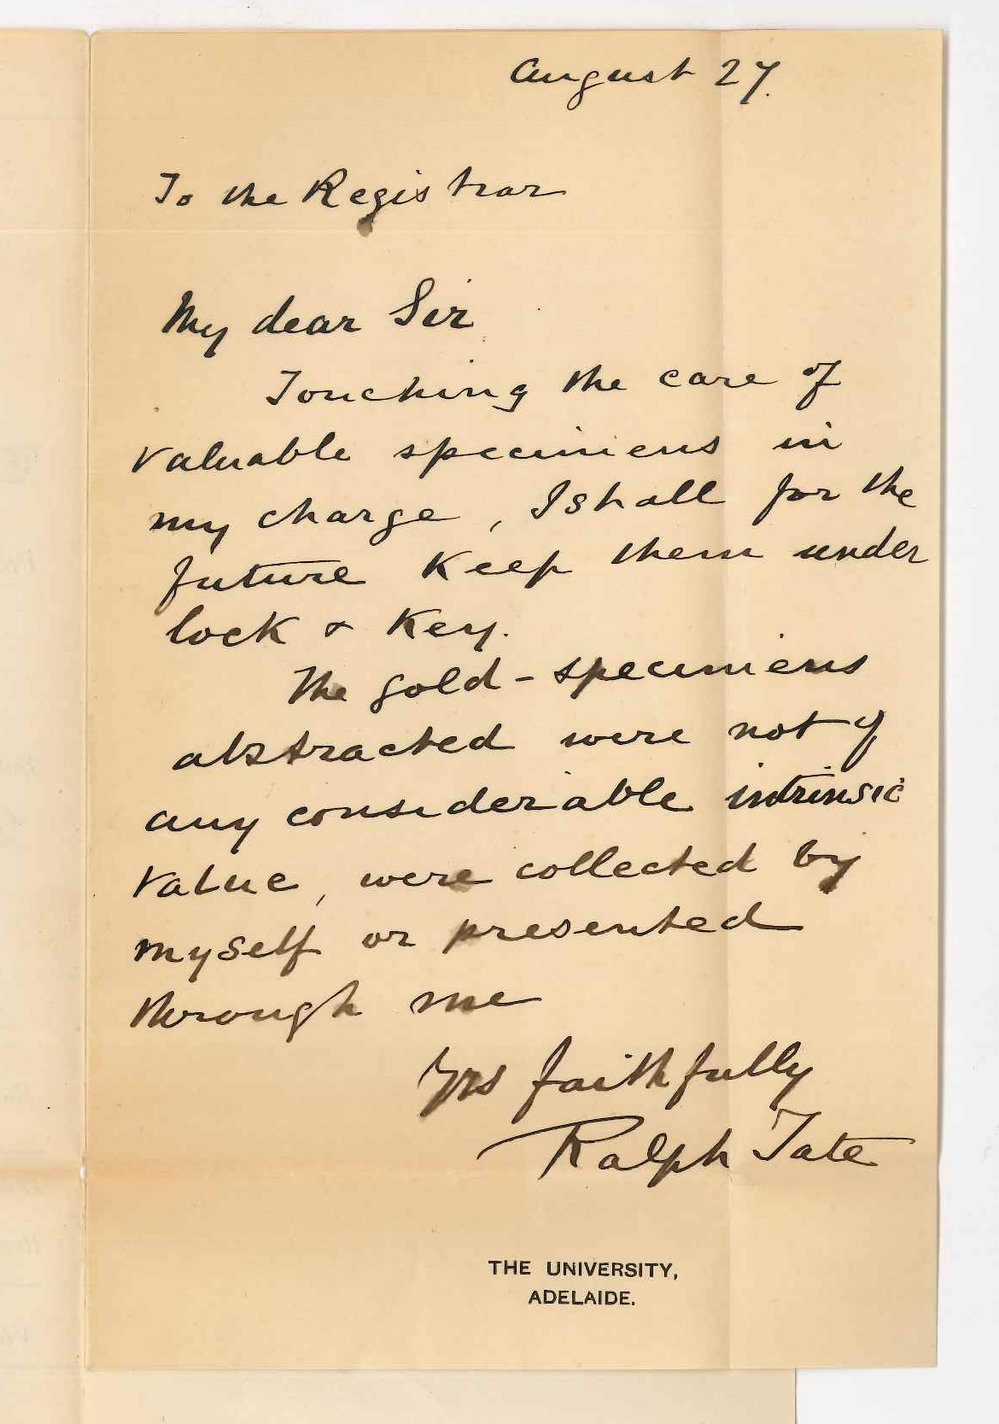 August 27.
To the Registrar
My dear Sir
Touching the care of
valuable specimens in
my charge, I shall for the
future keep them under
lock & key.
The gold-specimens
abstracted were not of
any considerable intrinsic
value, were collected by
myself or presented
through me
Yrs faithfully
Ralph Tate
THE UNIVERSITY,
ADELAIDE.